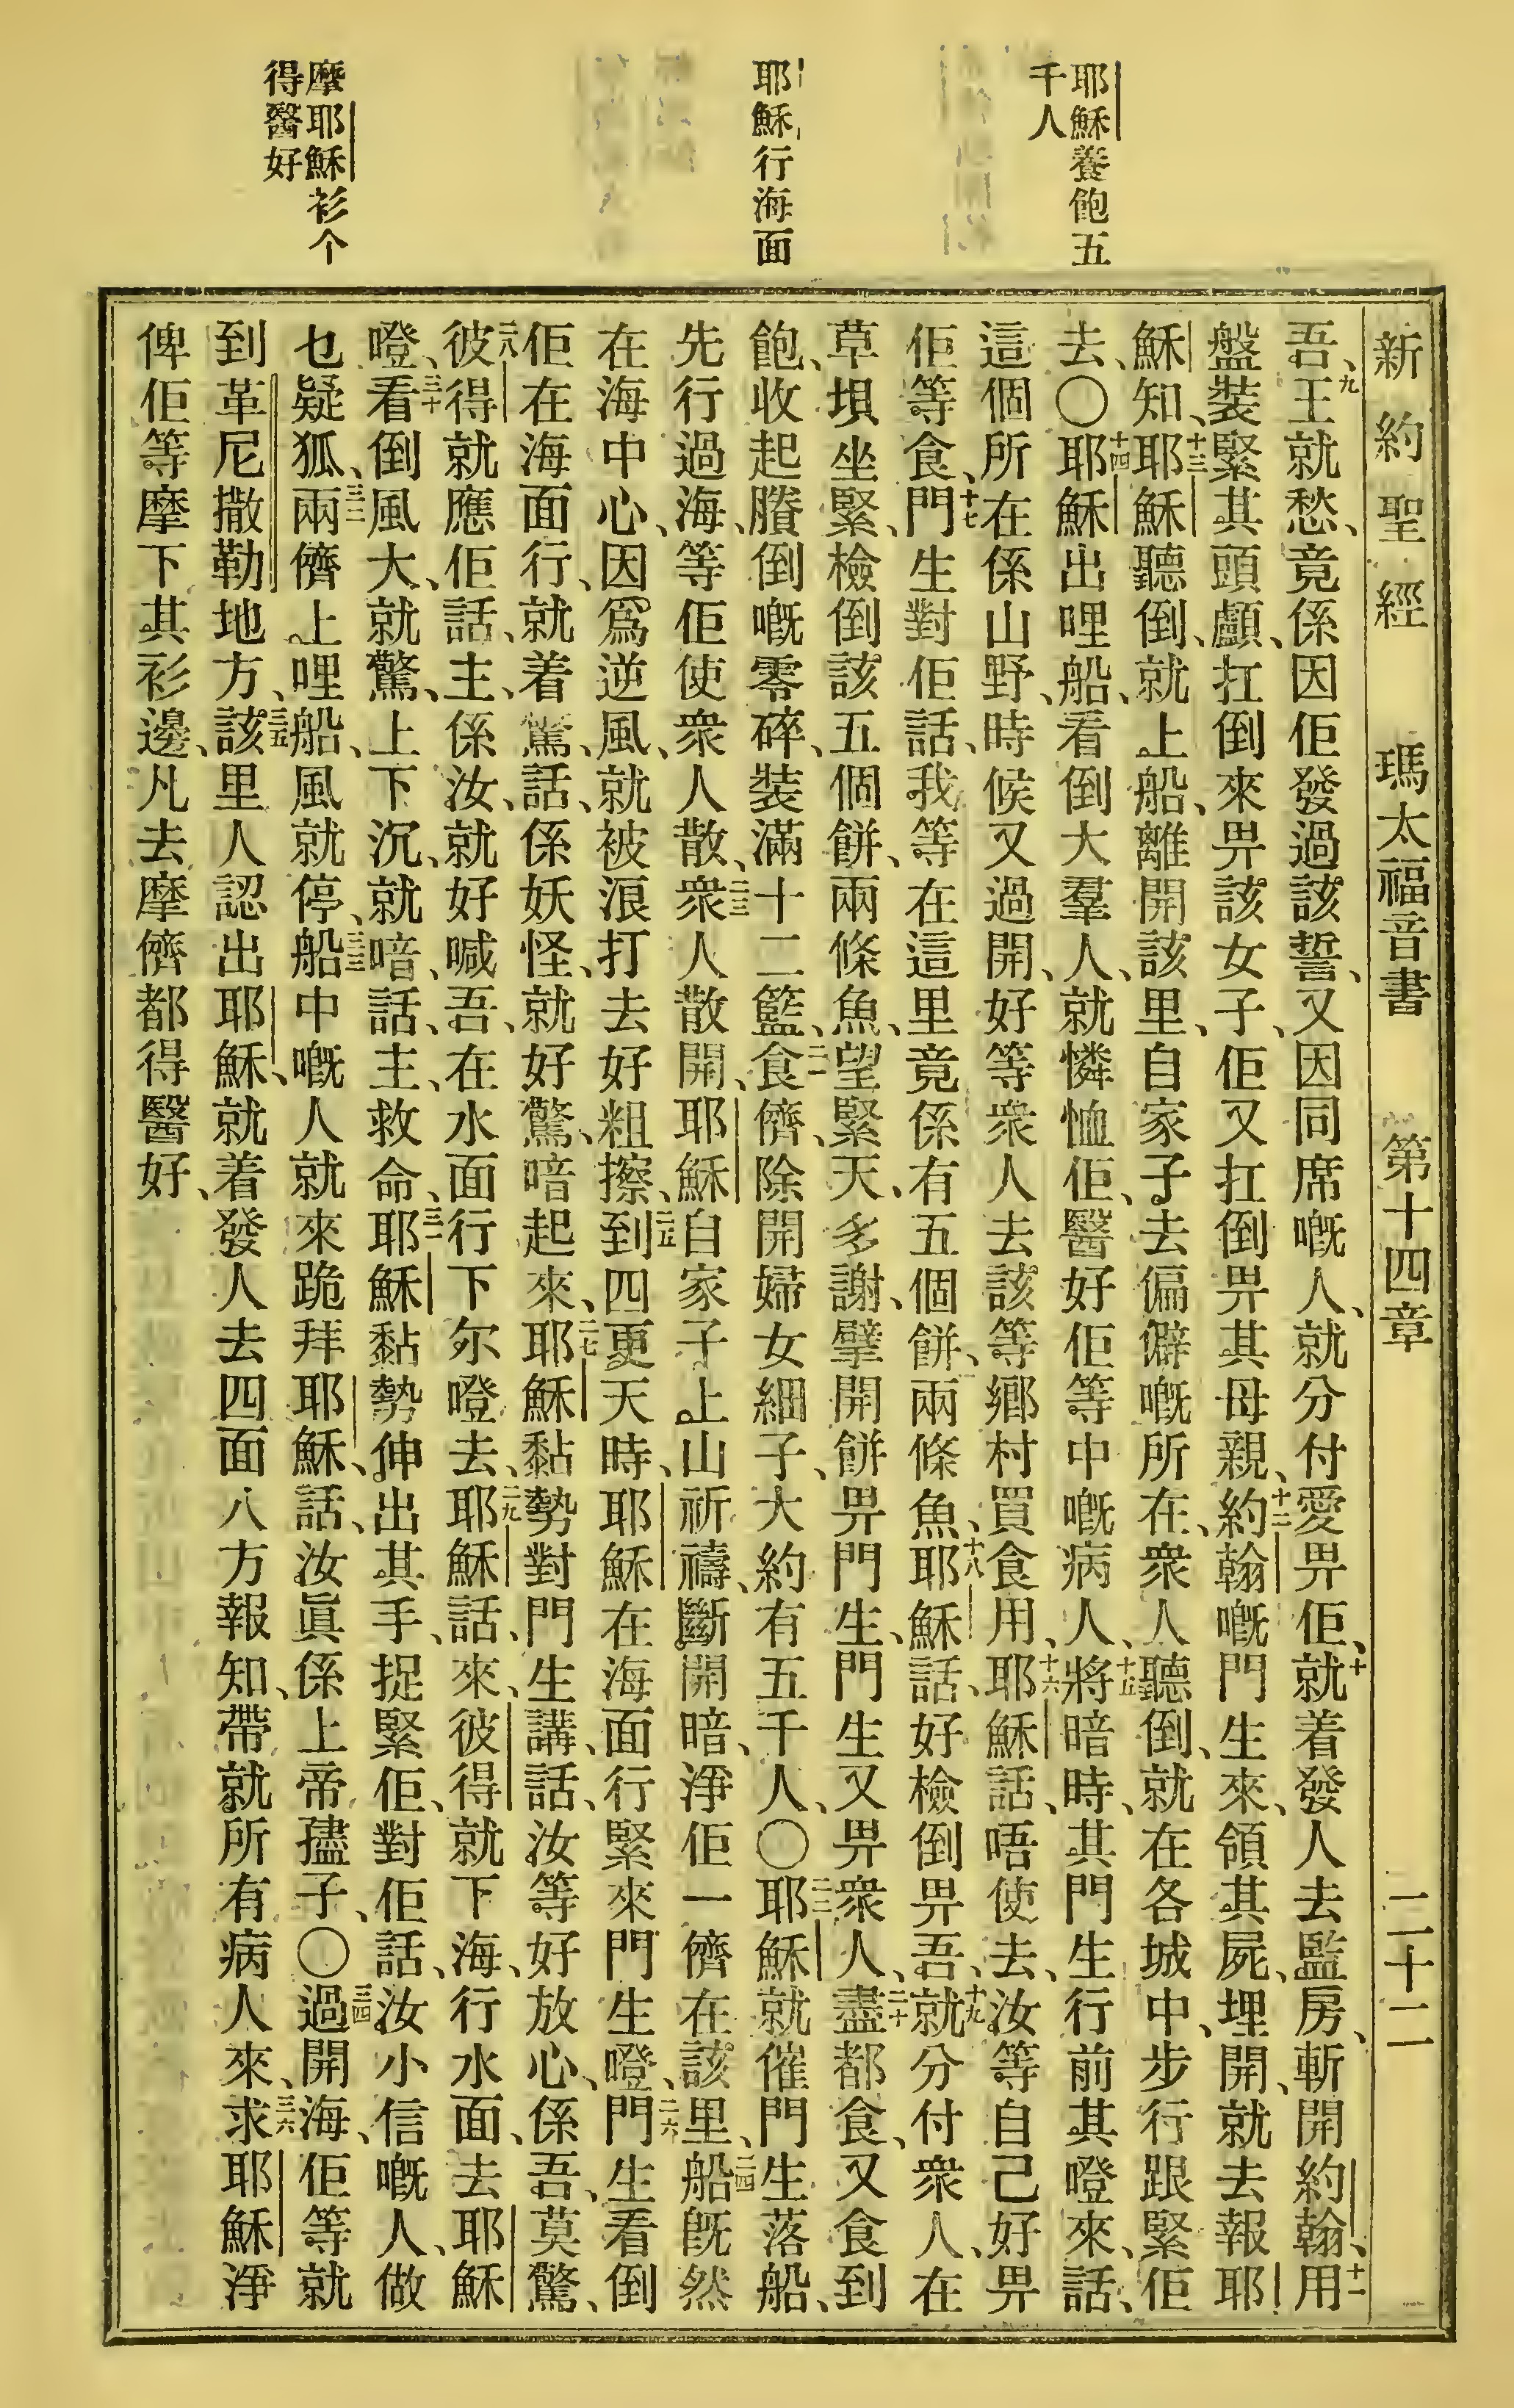 耶穌養飽五
千人
耶穌行海面
摩耶穌衫个
得醫好
新約聖經 瑪太福音書 第十四章 二十二
吾、九王就愁、竟係因佢發過該誓、又因同席嘅人、就分付愛畀佢、十就着發人去監房、斬開約翰、十一用
盤裝緊其頭顱、扛倒來畀該女子、佢又扛倒畀其母親、十二約翰嘅門生來、領其屍、埋開、就去報耶
穌知、十三耶穌聽倒、就上船、離開該里、自家子去偏僻嘅所在、衆人聽倒、就在各城中、步行跟緊佢
去、〇十四耶穌出哩船、看倒大羣人、就憐恤佢、醫好佢等中嘅病人、十五將暗時、其門生行前其嶝來、話、
這個所在係山野、時候又過開、好等衆人去該等鄉村買食用、十六耶穌話、唔使去、汝等自己好畀
佢等食、十七門生對佢話、我等在這里竟係有五個餅、兩條魚、十八耶穌話、好檢倒畀吾、十九就分付衆人、在
草垻坐緊、檢倒該五個餅、兩條魚、望緊天、多謝、擘開餅畀門生、門生又畀衆人、二十盡都食、又食到
飽、收起賸倒嘅零碎、裝滿十二籃、二一食儕、除開婦女細子、大約有五千人、〇二二耶穌就催門生落船、
先行過海、等佢使衆人散、二三衆人散開、耶穌自家子上山祈禱、斷開暗、淨佢一儕在該里、二四船旣然
在海中心、因爲逆風、就被浪打去好粗擦、二五到四更天時、耶穌在海面行緊來門生嶝、二六門生看倒
佢在海面行、就着驚、話、係妖怪、就好驚喑起來、二七耶穌黏勢對門生講、話、汝等好放心、係吾、莫驚、
二八彼得就應佢話、主、係汝、就好喊吾、在水面行下尔嶝去、二九耶穌話、來、彼得就下海、行水面、去耶穌
嶝、三十看倒風大、就驚、上下沉、就喑、話、主、救命、三一耶穌黏勢伸出其手、捉緊佢、對佢話、汝小信嘅人、做
乜疑狐、三二兩儕上哩船、風就停、三三船中嘅人就來跪拜耶穌、話、汝眞係上帝孻子、〇三四過開海、佢等就
到革尼撒勒地方、三五該里人認出耶穌、就着發人去四面八方報知、帶就所有病人來、三六求耶穌淨
俾佢等摩下其衫邊、凡去摩儕都得醫好、